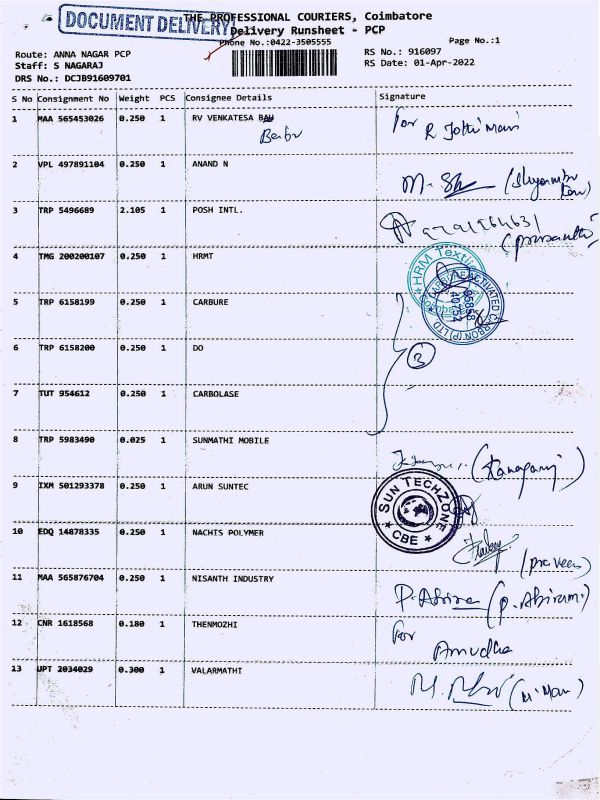 DOCUMENT DELIVERY
THE PROFESSIONAL COURIERS, Coimbatore
Delivery Runsheet - PCP
Phone No.:0422-3505555
Page No.:1
Route: ANNA NAGAR PCP
RS No.: 916097
Staff: S NAGARAJ
RS Date: 01-Apr-2022
DRS No.: DCJB91609701
S No Consignment No Weight PCS Consignee Details Signature
1 MAA 565453026 0.250 1 RV VENKATESA for R Jothi Mani
2 VPL 497891104 0.250 1 ANAND N M.
3 TRP 5496689 2.105 1 POSH INTL.
4 TMG 200200107 0.250 1 HRMT
HRM Textiles
ACTIVATED CARBON (P) LTD
5 TRP 6158199 0.250 1 CARBURE
6 TRP 6158200 0.250 1 DO 3
7 TUT 954612 0.250 1 CARBOLASE
8 TRP 5983490 0.025 1 SUNMATHI MOBILE
9 IXM 501293378 0.250 1 ARUN SUNTEC
SUN TECHZONE
CBE
10 EDQ 14878335 0.250 1 NACHIS POLYMER
11 MAA 565876704 0.250 1 NISANTH INDUSTRY P. Abirami (P. Abirami)
12 CNR 1618568 0.180 1 THENMOZHI for Amudha
13 UPT 2034029 0.300 1 VALARMATHI